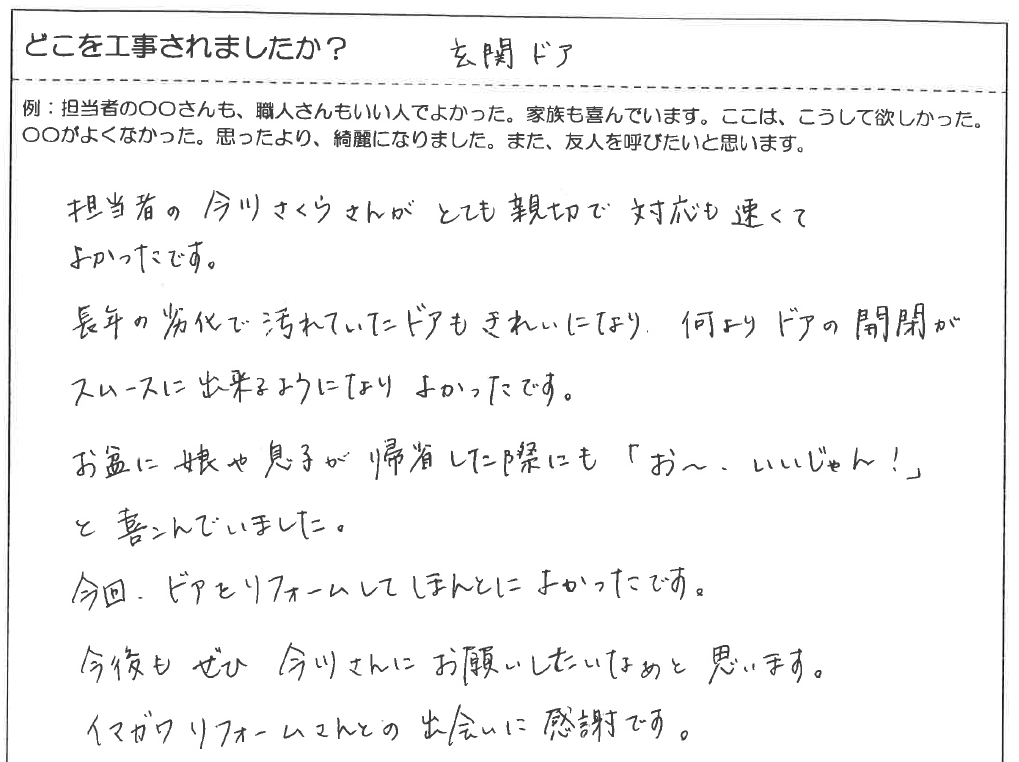 どこを工事されましたか？ 玄関ドア
例：担当者の〇〇さんも、職人さんもいい人でよかった。家族も喜んでいます。ここは、こうして欲しかった。
〇〇がよくなかった。思ったより、綺麗になりました。また、友人を呼びたいと思います。
担当者の今川さくらさんがとても親切で対応も速くて
よかったです。
長年の劣化で汚れていたドアもきれいになり、何よりドアの開閉が
スムースに出来るようになりよかったです。
お盆に娘や息子が帰省した際にも「お〜、いいじゃん！」
と喜こんでいました。
今回、ドアをリフォームしてほんとによかったです。
今後もぜひ今川さんにお願いしたいなぁと思います。
イマガワリフォームさんとの出会いに感謝です。